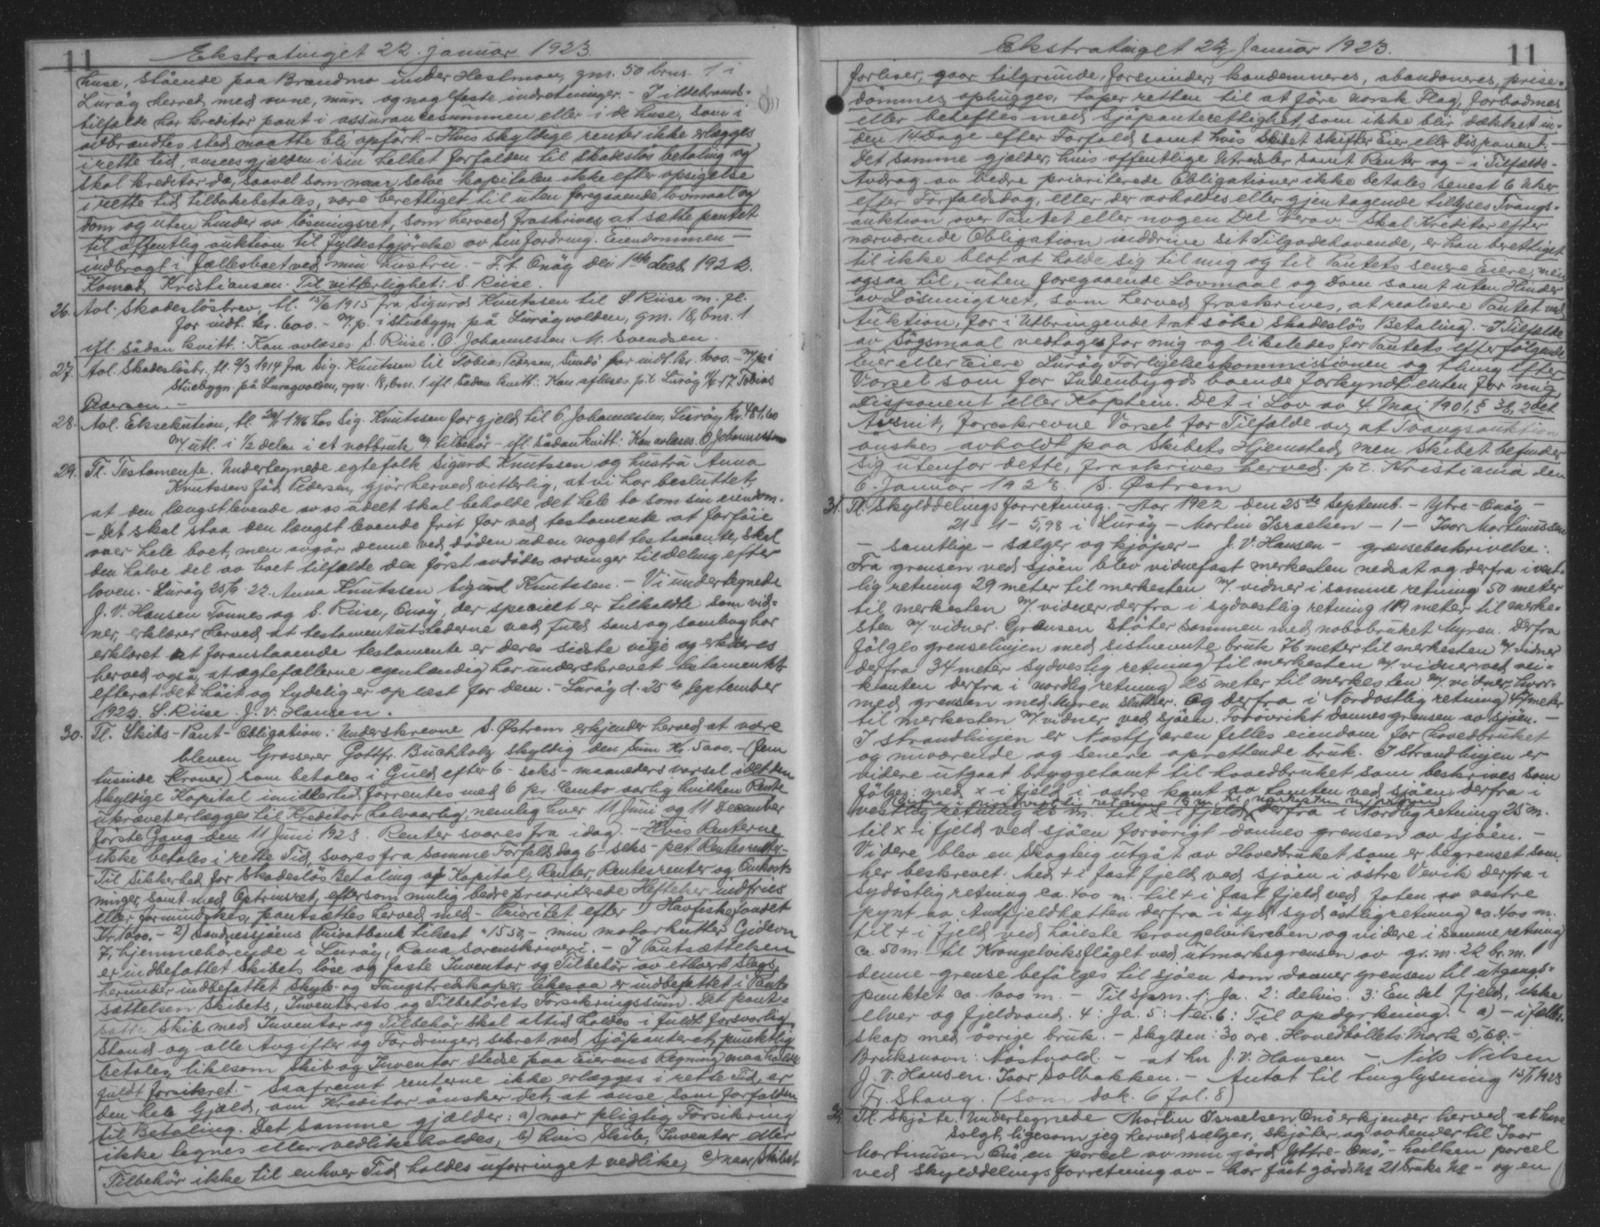 11
Ekstratinget 22. januar 1923
huse, stående paa Brandmo under Hestmon, gnr. 50 brnr. 1 i
Lurøy herred med ovne, mur- og nagelfaste indretninger. - I ildebrands-
tilfælde har kreditor pant i assurancesummen eller i de huse, som i
avbrændtes sted maatte bli opført. - Hvis skyldige renter ikke erlægges
i rette tid, ansees gjælden i sin helhet forfalden til skadesløs betaling og
skal kreditor da, saavel som naar selve kapitalen ikke efter opsigelse
i rette tid tilbakebetales, være berettiget til uten foregaaende lovmaal og
dom og uten hinder av løsningsret, som herved fraskrives, at sætte pantet
til offentlig auktion til fyldestgjørelse av sin fordring. Eiendommen
indbragt i fællesboet ved min hustru. - F.t. Onøy den 1ste Decb. 1922.
Konrad Kristiansen. Til vitterlighet: S. Riise.
26. Avl. Skadesløsbrev, tl. 1915 fra Sigurd Knutssen til S Riise m. fl.
for indt. kr. 600. - m/p. i stuebygn på Lurøyvolden, gnr. 18, bnr. 1
ifl. sådan kvitt: Kan avlæses S. Riise. O. Johannessen M. Svendsen.
27. Avl. Skadesløsbr. tl. 2/3 1914 fra Sig. Knutssen til Tobias Pedersen, for indt. kr. 600. - m/p i
Stuebygn. på Lurøyvolden, gnr. 18, bnr. 1 ifl. sådan kvitt: Kan aflæses p.t. Lurøy 17 Tobias
Pedersen. -
28. Avl. Eksekution, tl. hos Sig. Knutssen for gjeld til O Johannessen, Lurøy kr. 481,60
m/ utl. i 1/2 delen i et notbruk m/ tilbehør - ifl. sådan kvitt: Kan avlæses. O Johannessen
29. Tl. Testamente. Undertegnede egtefolk Sigurd Knutssen og hustru Anna
Knutssen fød Pedersen, gjør herved vitterlig, at vi har besluttet,
at den længstlevende av os udelt skal beholde det hele bo som sin eiendom.
- Det skal staa den længst levende frit for ved testamente at forføie
over hele boet, men avgår denne ved døden uden noget testamente, skal
den halve del av boet tilfalde den først avdødes arvinger til deling efter
loven. - Lurøy 25/9 22. Anna Knutssen Sigurd Knutssen. - Vi undertegnede
J. V. Hansen Tonnes og S. Riise, Onøy, der specielt er tilkaldte som vid-
ner, erklærer herved at testamentutstederne ved fuld sans og samling har
erklæret at foranstaaende testamente er deres sidste vilje og erklæres
herved også, at ægtefællerne egenhændig har underskrevet testamentet
efterat det høit og tydelig er oplæst for dem. - Lurøy d. 25de September
1922. S. Riise. J. V. Hansen.
30. Tl. Skibs-Pant-Obligation: Underskrevne S. Østrem erkjender herved at være
bleven Grosserer Gottfr. Buchholz skyldig den Sum Kr. 5000. - (fem
tusinde Kroner) som betales i Guld efter 6 - seks - maaneders varsel idet den
skyldige Kapital imidlertid forrentes med 6 pr. Cento aarlig hvilken Rente
ukrævet erlægges til Kreditor halvaarlig, nemlig hver 11 Juni og 11 December
første Gang den 11 Juni 1923. Renter svares fra idag. - Hvis Renterne
ikke betales i rette Tid, svares fra samme Forfaldsdag 6 - seks - pct. Rentesrenter.-
Til Sikkerhed for skadesløs Betaling af Kapital, Renter, Rentesrenter og Omkost-
ninger, samt med Optrinsret, eftersom mulig bedre prioriterede Hæftelser indfries
eller formindskes, pantsættes herved med - Prioritet efter 1) Havfiskefondet
Kr. 1000. - 2) Sandnessjøens Privatbank tilbest " 1550, - min motorkutter Gideon
7, hjemmehørende i Lurøy, Rana Sorenskriveri. - I Pantsættelsen
er indbefattet Skibets løse og faste Inventar og Tilbehør av ethvert Slags,
herunder indbefattet Skyde- og Fangstredskaper, likesaa er indbefattet i Pant-
sættelsen Skibets, Inventarets og Tilbehørets Forsikringssum. Det pant-
satte Skib med Inventar og Tilbehør skal altid holdes i fuldt forsvarlig
Stand og alle Avgifter og Fordringer, sikret ved Sjøpanteret, punktlig
betales, likesom Skib og Inventar stedse paa Eierens Regning maa holdes
fuldt forsikret. - Saafremt renterne ikke erlægges i rette Tid, er
den hele Gjæld, om Kreditor ønsker det, at anse som forfalden
til Betaling. Det samme gjælder: a) naar pligtig Forsikring
ikke tegnes eller vedlikeholdes, b) hvis Skib, Inventar eller
Tilbehør ikke til enhver Tid holdes uforringet vedlike, c) naar Skibet
Ekstratinget 22 Januar 1923.
11
forliser, gaar tilgrunde, forsvinder, kondemneres, abandoneres, prise-
dømmes, ophugges, taper retten til at føre norsk Flag, forbodmes
eller beheftes med sjøpanterettighet som ikke blir dækket in-
den 14 Dage efter Forfald samt hvis Skibet skifter Eier eller Disponent. -
Det samme gjælder, hvis offentlige Utredsler samt Renter og - i Tilfælde -
Avdrag av bedre prioriterede Obligationer ikke betales senest 6 Uker
efter Forfaldsdag, eller der avholdes eller gjentagende tillyses Tvangs-
auktion over Pantet eller nogen Del derav. Skal Kreditor efter
nærværende Obligation inddrive sit Tilgodehavende, er han berettiget
til ikke blot at holde sig til mig og til Pantets senere Eiere, men
ogsaa til, uten foregaaende Lovmaal og Dom samt uten Hinder
av Løsningsret, som herved fraskrives, at realisere Pantet ved
Auktion, for i Utbringendet at søke skadesløs Betaling. - I Tilfælde
av Søgsmaal vedtages for mig og likeledes for Pantets efterfølgende
Eier eller Eiere Lurøy Forligelseskommissionen og thing efter
Varsel som for Indenbygds boende forkyndt enten for mig
Disponent eller Kaptein. Det i Lov av 4. Mai 1901, § 38, 2det
Avsnit, foreskrevne Varsel for Tilfælde av, at Tvangsauktion
ønskes avholdt paa Skibets Hjemsted, men Skibet befinder
sig utenfor dette, fraskrives herved. p.t. Kristiania den
6. Januar 1923. S. Østrem
31. Tl. Skylddelingsforretning. - Aar 1922 den 25de Septemb. - Ytre-Onøy -
21 - 1 - 5,98 i Lurøy - Morten Israelsen - 1 - Ivar Mortinussen
- samtlige - sælger og kjøper - J. V. Hansen - grænsebeskrivelse:
Fra grensen ved sjøen blev vidnefast merkesten nedsat og derfra i vest-
lig retning 29 meter til merkesten m/ vidner i samme retning 50 meter
til merkesten m/ vidner derfra i sydvestlig retning 119 meter til merke-
sten m/ vidner. Grænsen støter sammen med nabobruket Myren. Derfra
følges grenselinjen med sistnevnte bruk 76 meter til merkesten m/ vidner
derfra 34 meter sydvestlig retning til merkesten m/ vidner ved vei-
kanten derfra i nordlig retning 25 meter til merkesten m/ vidner, hvor-
med grensen med Myren slutter. Og derfra i Nordostlig retning 47 meter
til merkesten m/ vidner ved sjøen. Forøvrikt dannes grensen av sjøen. -
I strandlinjen er Nostf æren felles eiendom for hovedbruket
og nuværende og senere oprettende bruk. I Strandlinjen er
videre utgaat bryggetomt til hovedbruket som beskrives som
følger: med x i fjeld i østre kant av tomten ved sjøen, derfra i
vestlig retning 25 m. til x i fjeld derfra i Nordlig retning 25 m.
til x i fjeld ved sjøen forøvrigt dannes grensen av sjøen. -
Videre blev en skogteig utgåt av Hovedbruket som er begrenset som
her beskrevet. Med + i fast fjeld ved sjøen i østre Vevik derfra i
sydøstlig retning ca. 400 m. til + i fast fjeld ved foten av vestre
pynt av Andfjeldhætten derfra i syd sydostlig retning ca. 400 m.
til + i fjeld ved høieste krangelvikreben og videre i samme retning
ca. 50 m. til Krangelviksflåget ved utmarksgrensen av gr. nr. 22 br. nr.
denne grense befølges til sjøen som danner grensen til utgangs-
punktet ca. 1000 m. - Til spm. 1: Ja. 2: delvis. 3: En del fjeld, ikke
elver og fjeldvand. 4: Ja. 5: Nei. 6: Til opdyrkning. - a) - i felles-
skap med øvrige bruk. - Skylden: 30 øre. Hovedbøllets Mark 5,68. -
Bruksnavn: Nostvold. - at hr J. V. Hansen - Nils Nilsen
J. V. Hansen. Ivar Solbakken. - Antat til tinglysning 15/1 1923
Fr. Stang. (som dok. 6 fol. 8)
32. Tl. Skjøte. Undertegnede Morten Israelsen Onø erkjender herved at have
solgt, ligesom jeg herved sælger, skjøter og avhender til Ivar
Mortinusen Onø, en parcel av min gård Yttre-Onø, - hvilken parcel
ved skylddelingsforretning av - har fåt gårds No 21 bruks No - og en